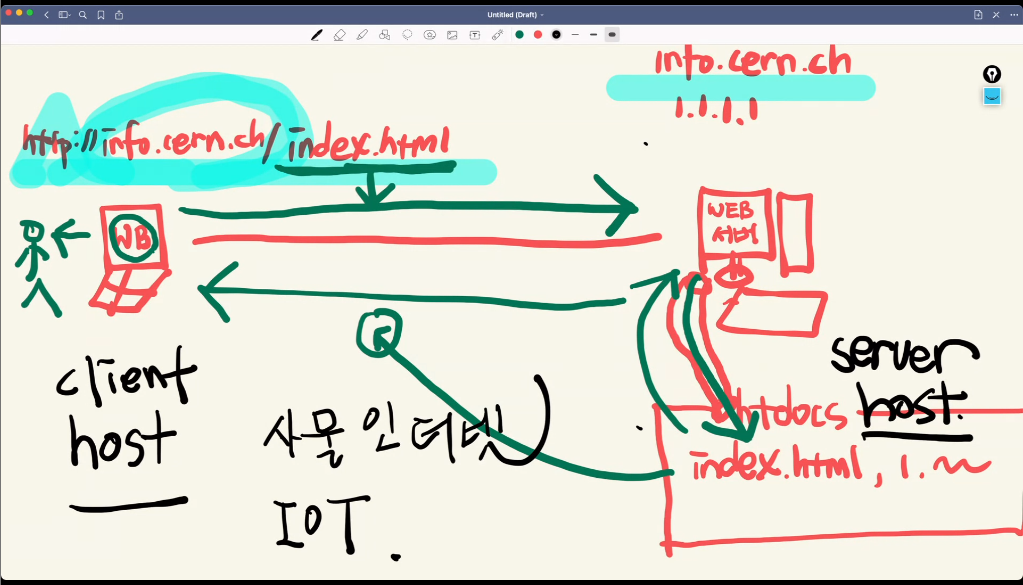 Untitled (Draft)
info.cern.ch
1.1.1.1
http://info.cern.ch/index.html
WB
WEB
서버
client
host
server
host.
사물인터넷
IOT.
htdocs
index.html, 1.